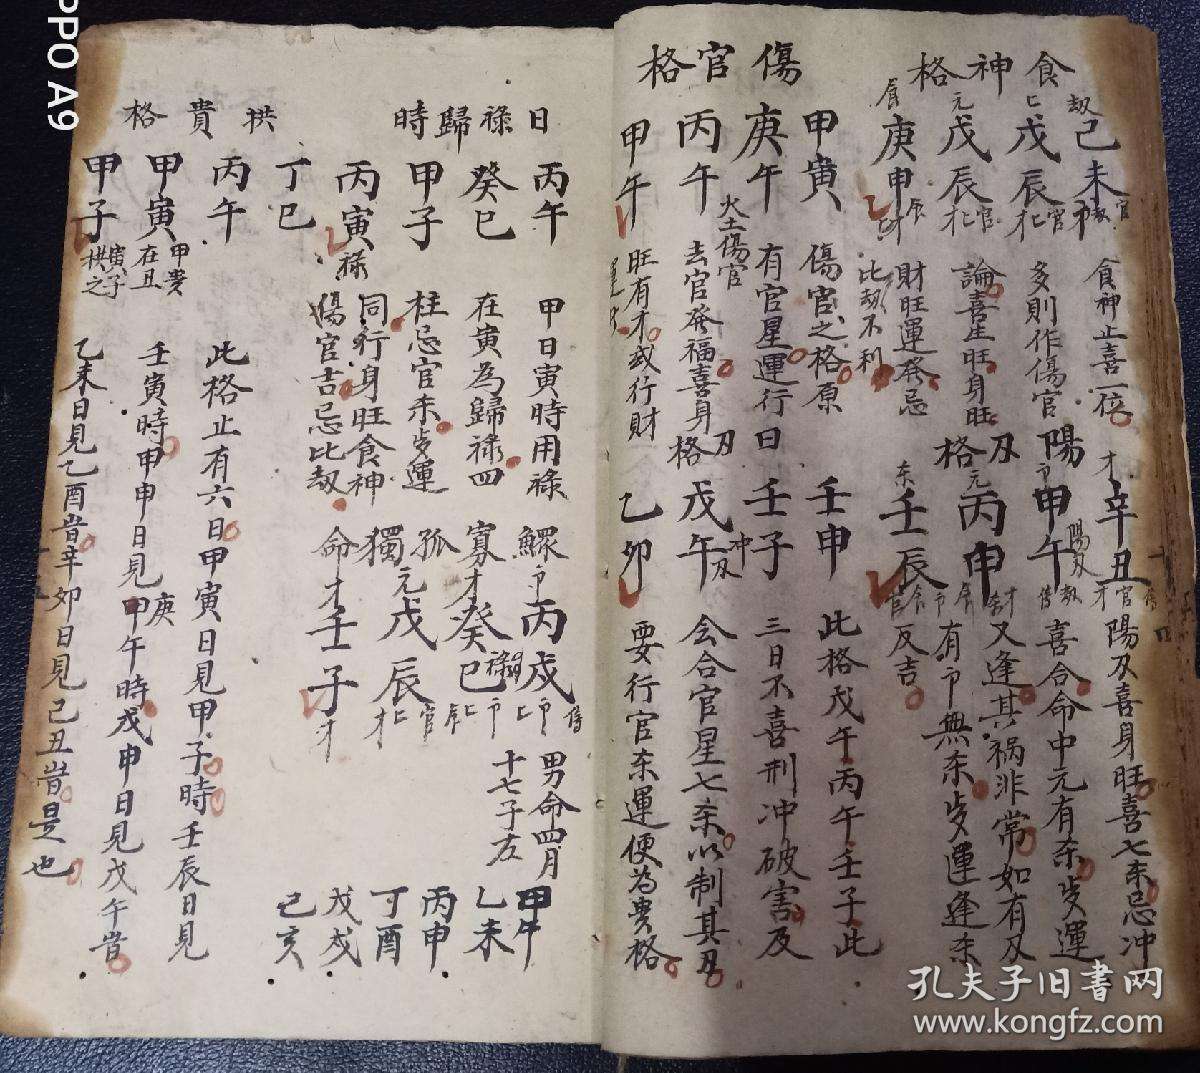 食神格
己未
戊辰
戊辰
庚申
食神止喜一位
多則作傷官
論喜生旺身旺
財旺運發忌
比劫不利
陽刃格
辛丑
甲午
丙申
壬辰
陽刃喜身旺喜七杀忌冲
喜合命中元有杀歩運
又逢其祸非常如有刃
有卩無杀歩運逢杀
反吉
傷官格
甲寅
庚午
丙午
甲午
火土傷官
傷官之格原
有官星運行
去官發福喜身
旺有才或行財
運
日刃格
壬申
壬子
戊午
乙卯
此格戊午丙午壬子此
三日不喜刑冲破害及
会合官星七杀以制其刃
要行官杀運便為贵格
日禄歸時
丙午
癸巳
甲子
丙寅
禄
甲日寅時用禄
在寅為歸禄四
柱忌官杀歩運
同行身旺食神
傷官吉忌比劫
鰥寡孤獨命
丙戌
癸巳
戊辰
壬子
男命四月
十七子左
甲午
乙未
丙申
丁酉
戊戌
己亥
拱貴格
丁巳
丙午
甲寅
甲子
甲贵
在丑
寅子
拱之
此格止有六日甲寅日見甲子時壬辰日見
壬寅時甲申日見甲午時戊申日見戊午旹
乙未日見乙酉旹辛卯日見己丑旹是也
孔夫子旧书网
www.kongfz.com
PPO A9